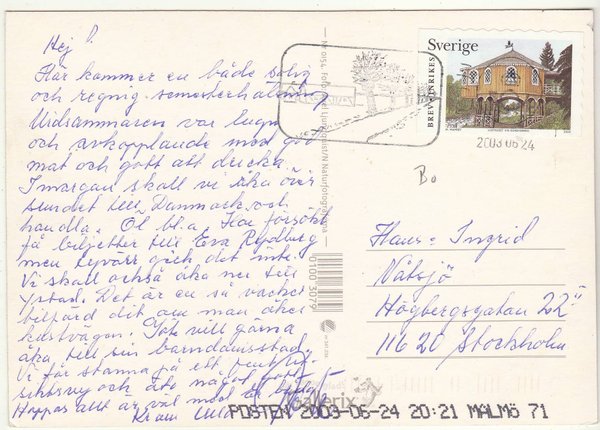 Hej!
Här kommer en både solig
och regnig semesterhälsning
Midsommaren var lugn
och avkopplande med god
mat och gott att dricka.
I morgon skall vi åka över
sundet till Danmark och
handla. Öl bl.a. Har försökt
få biljetter till Eva Rydberg
men tyvärr gick det inte.
Vi skall också åka ner till
Ystad. Det är en så vacker
biltur dit om man åker
kustvägen. vill gärna
åka till sin barndomsstad.
Vi får stanna på ett
och äta något gott
Hoppas allt är väl med er
Kram
Sverige
BREV INRIKES
2003 06 24
Bo
Hans- Ingrid
Nätsjö
Högbergsgatan 22
116 20 Stockholm
0100 3079
galerix
POSTEN 2003-06-24 20:21 MALMÖ 71